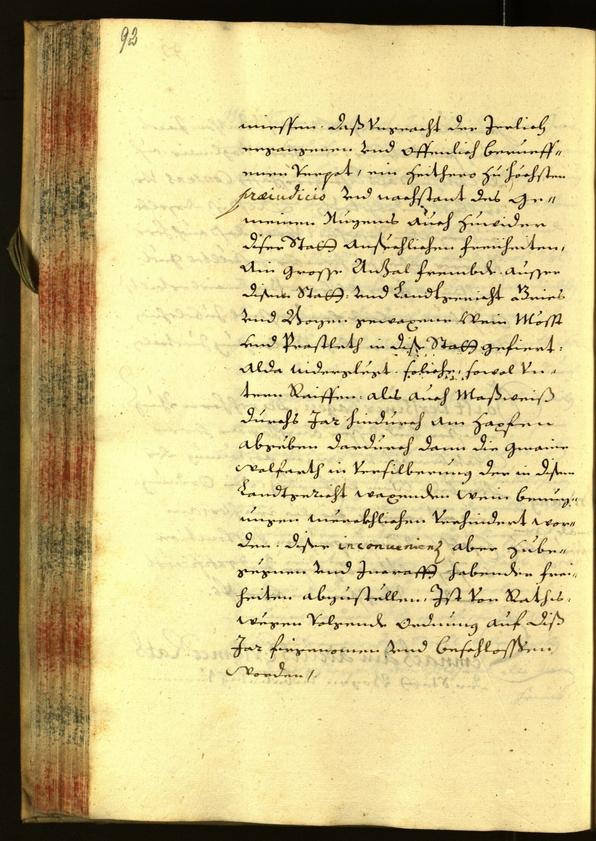 92
miessen. daß Vngeacht der Jerlich
ergangenen Vnd offenlich berueff¬
enen Verpot, ein Zeithero zu höchsten
præiudicio Vnd nachstant des Ge¬
meinen Nuzens auch zuwider
diser Statt ansechlichen freiheiten,
Ain grosse Anzal frembde ausser
diser Statt. Vnd Landtgericht Gries
Vnd Bozen gewaxene Wein Mösst
Vnd Praschleth in dise Statt gefiert:
Alda nidergelegt. soliche, sowol Vn¬
tern Raiffen: als auch Maßweiß
durchs Jar hindurch am Zapfen
abgeben dardurch dann die gmaine
wolfarth in Versilberung der in disem
Landtgericht waxenden Wein
merckhlichen Verhindert wor¬
den: diser inconuenienz aber zube¬
gegnen Vnd Jnerafft habender frei¬
heiten abzustellen, Jst Von Raths
wegen Volgende Ordnung auf diß
Jar firgenomen Vnd beschlossen
worden,